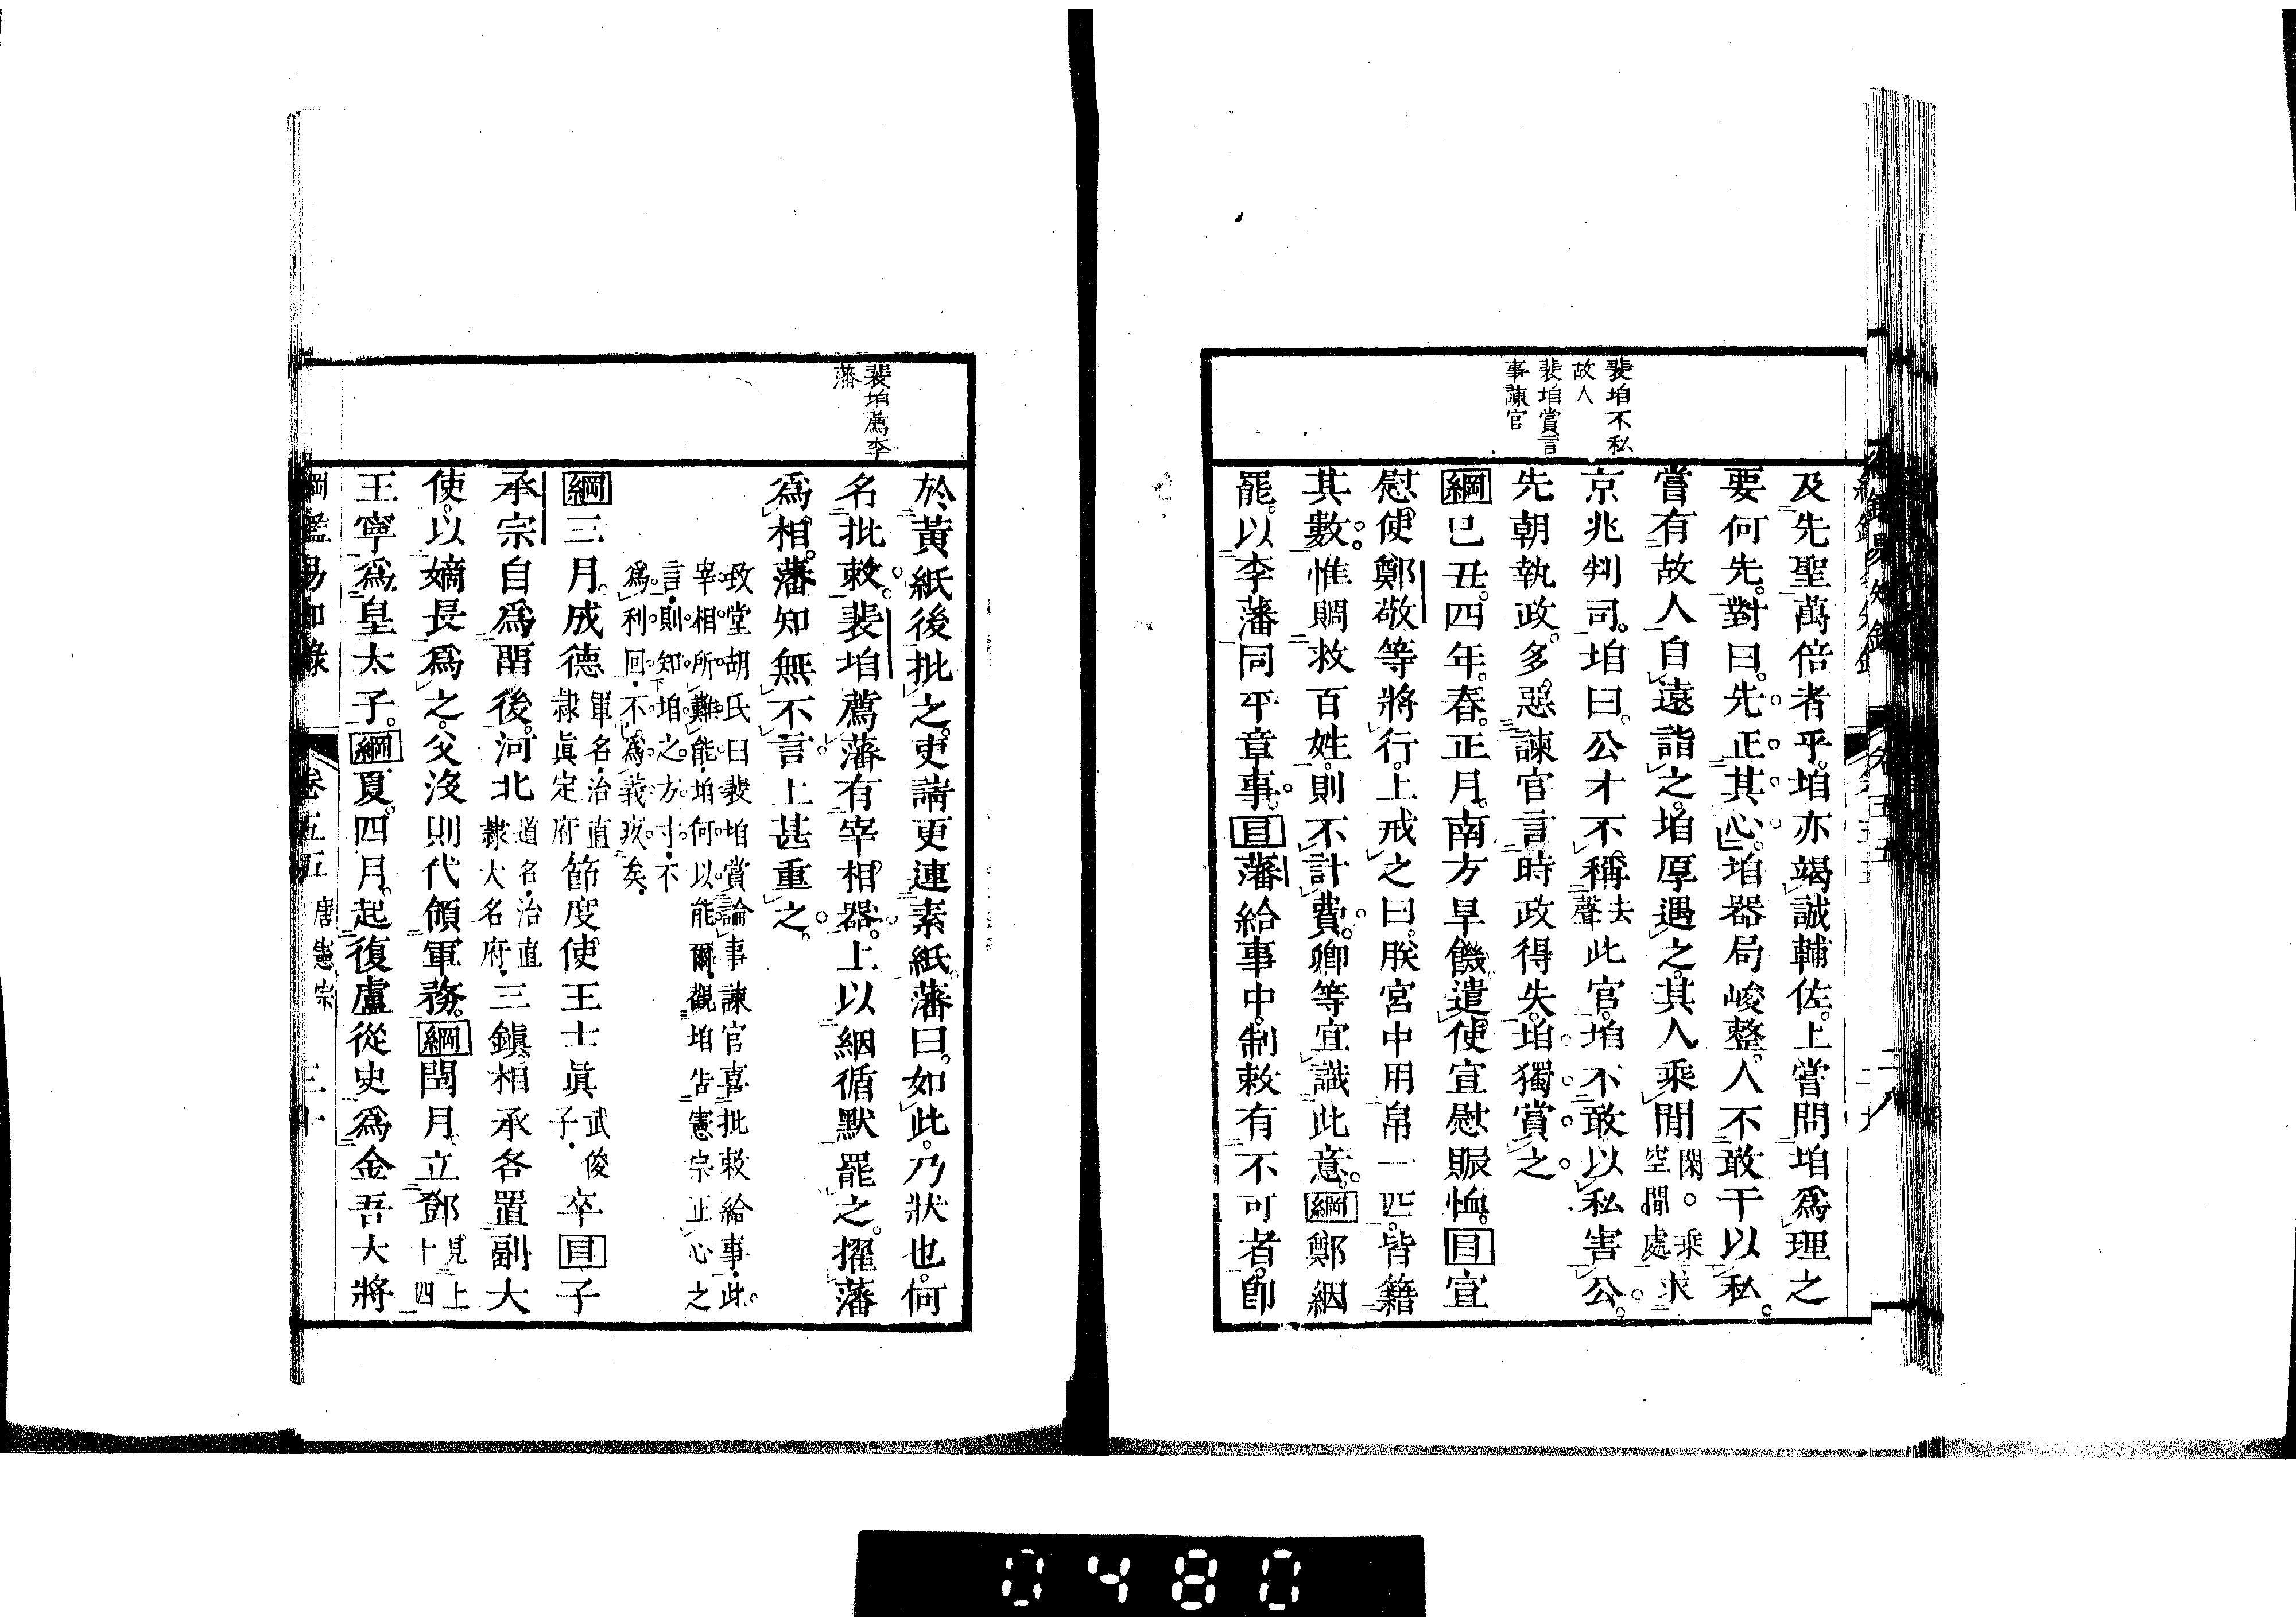 裴垍不私
故人
裴垍賞言
事諫官
及先聖萬倍者乎。垍亦竭誠輔佐。上嘗問垍爲理之
要何先。對曰。先正其心。垍器局峻整。人不敢干以私。
嘗有故人自遠詣之。垍厚遇之。其人乘閒閑。乘求空閒處
京兆判司。垍曰。公才不稱去聲此官。垍不敢以私害公。
先朝執政。多惡諫官言時政得失。垍獨賞之
綱己丑。四年。春。正月。南方旱饑。遣使宣慰賑恤。目宣
慰使鄭敬等將行。上戒之曰。朕宮中用帛一匹。皆籍
其數。惟賙救百姓。則不計費。卿等宜識此意。綱鄭絪
罷。以李藩同平章事。目藩給事中。制敕有不可者。卽
裴垍薦李
藩
於黃紙後批之。吏請更連素紙。藩曰。如此。乃狀也。何
名批敕。裴垍薦藩有宰相器。上以絪循默罷之。擢藩
爲相。藩知無不言。上甚重之。
致堂胡氏曰裴垍賞論事諫官喜批敕給事。此
宰相所難能。垍何以能爾。觀垍告憲宗正心之
言。則知垍之方寸。不
爲利回。不爲義疚矣。
綱三月。成德軍名。治直隸眞定府節度使王士眞武俊子。卒目子
承宗自爲留後。河北道名。治直隸大名府。三鎭。相承各置副大
使。以嫡長爲之。父沒則代領軍務。綱閏月。立鄧見上十四
王寧爲皇太子。綱夏。四月。起復盧從史爲金吾大將
綱鑑易知錄 卷五五 唐憲宗 三十
0480